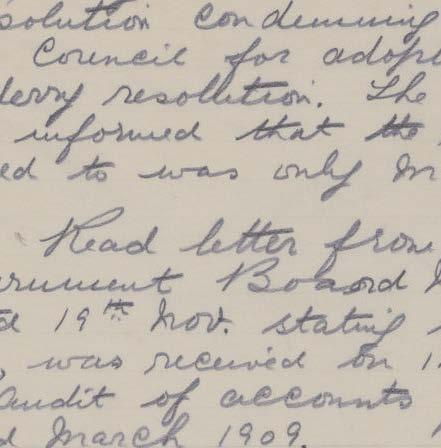 solution condemning
Council for adop
derry resolution. The
informed that the
ed to was only m
Read letter from
ernment Board
d 19th Nov. stating
, was received on 1
audit of accounts
d March 1909.